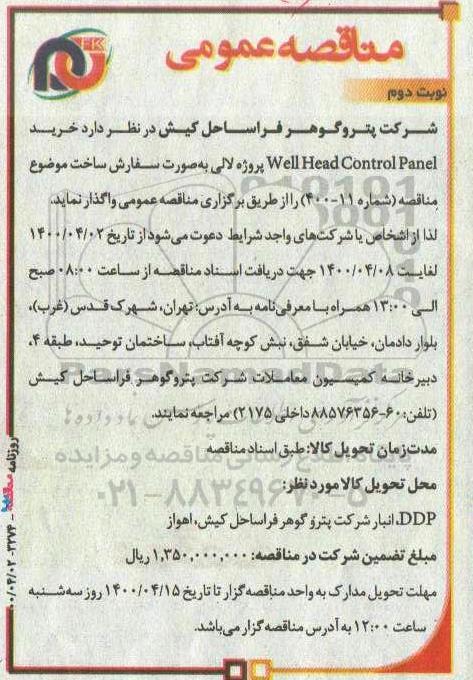 مناقصه عمومی
نوبت دوم
شرکت پتروگوهر فراساحل کیش در نظر دارد خرید
Well Head Control Panel پروژه لالی به‌صورت سفارش ساخت موضوع
مناقصه (شماره ۱۱-۴۰۰) را از طریق برگزاری مناقصه عمومی واگذار نماید.
لذا از اشخاص یا شرکت‌های واجد شرایط دعوت می‌شود از تاریخ ۱۴۰۰/۰۴/۰۲
لغایت ۱۴۰۰/۰۴/۰۸ جهت دریافت اسناد مناقصه از ساعت ۰۸:۰۰ صبح
الی ۱۳:۰۰ همراه با معرفی‌نامه به آدرس: تهران، شهرک قدس (غرب)،
بلوار دادمان، خیابان شفق، نبش کوچه آفتاب، ساختمان توحید، طبقه ۴،
دبیرخانه کمیسیون معاملات شرکت پتروگوهر فراساحل کیش
(تلفن: ۶۰-۸۸۵۷۶۳۵۶ داخلی ۲۱۷۵) مراجعه نمایند.
مدت‌زمان تحویل کالا: طبق اسناد مناقصه
محل تحویل کالا مورد نظر:
DDP، انبار شرکت پترو گوهر فراساحل کیش، اهواز
مبلغ تضمین شرکت در مناقصه: ۱,۳۵۰,۰۰۰,۰۰۰ ریال
مهلت تحویل مدارک به واحد مناقصه‌گزار تا تاریخ ۱۴۰۰/۰۴/۱۵ روز سه‌شنبه
ساعت ۱۲:۰۰ به آدرس مناقصه‌گزار می‌باشد.
ParsNamadData
۰۲۱-۸۸۳۴۹۶۷۰-۵
روزنامه مناقصه - ۳۲۷۴ - ۰۰/۰۴/۰۲